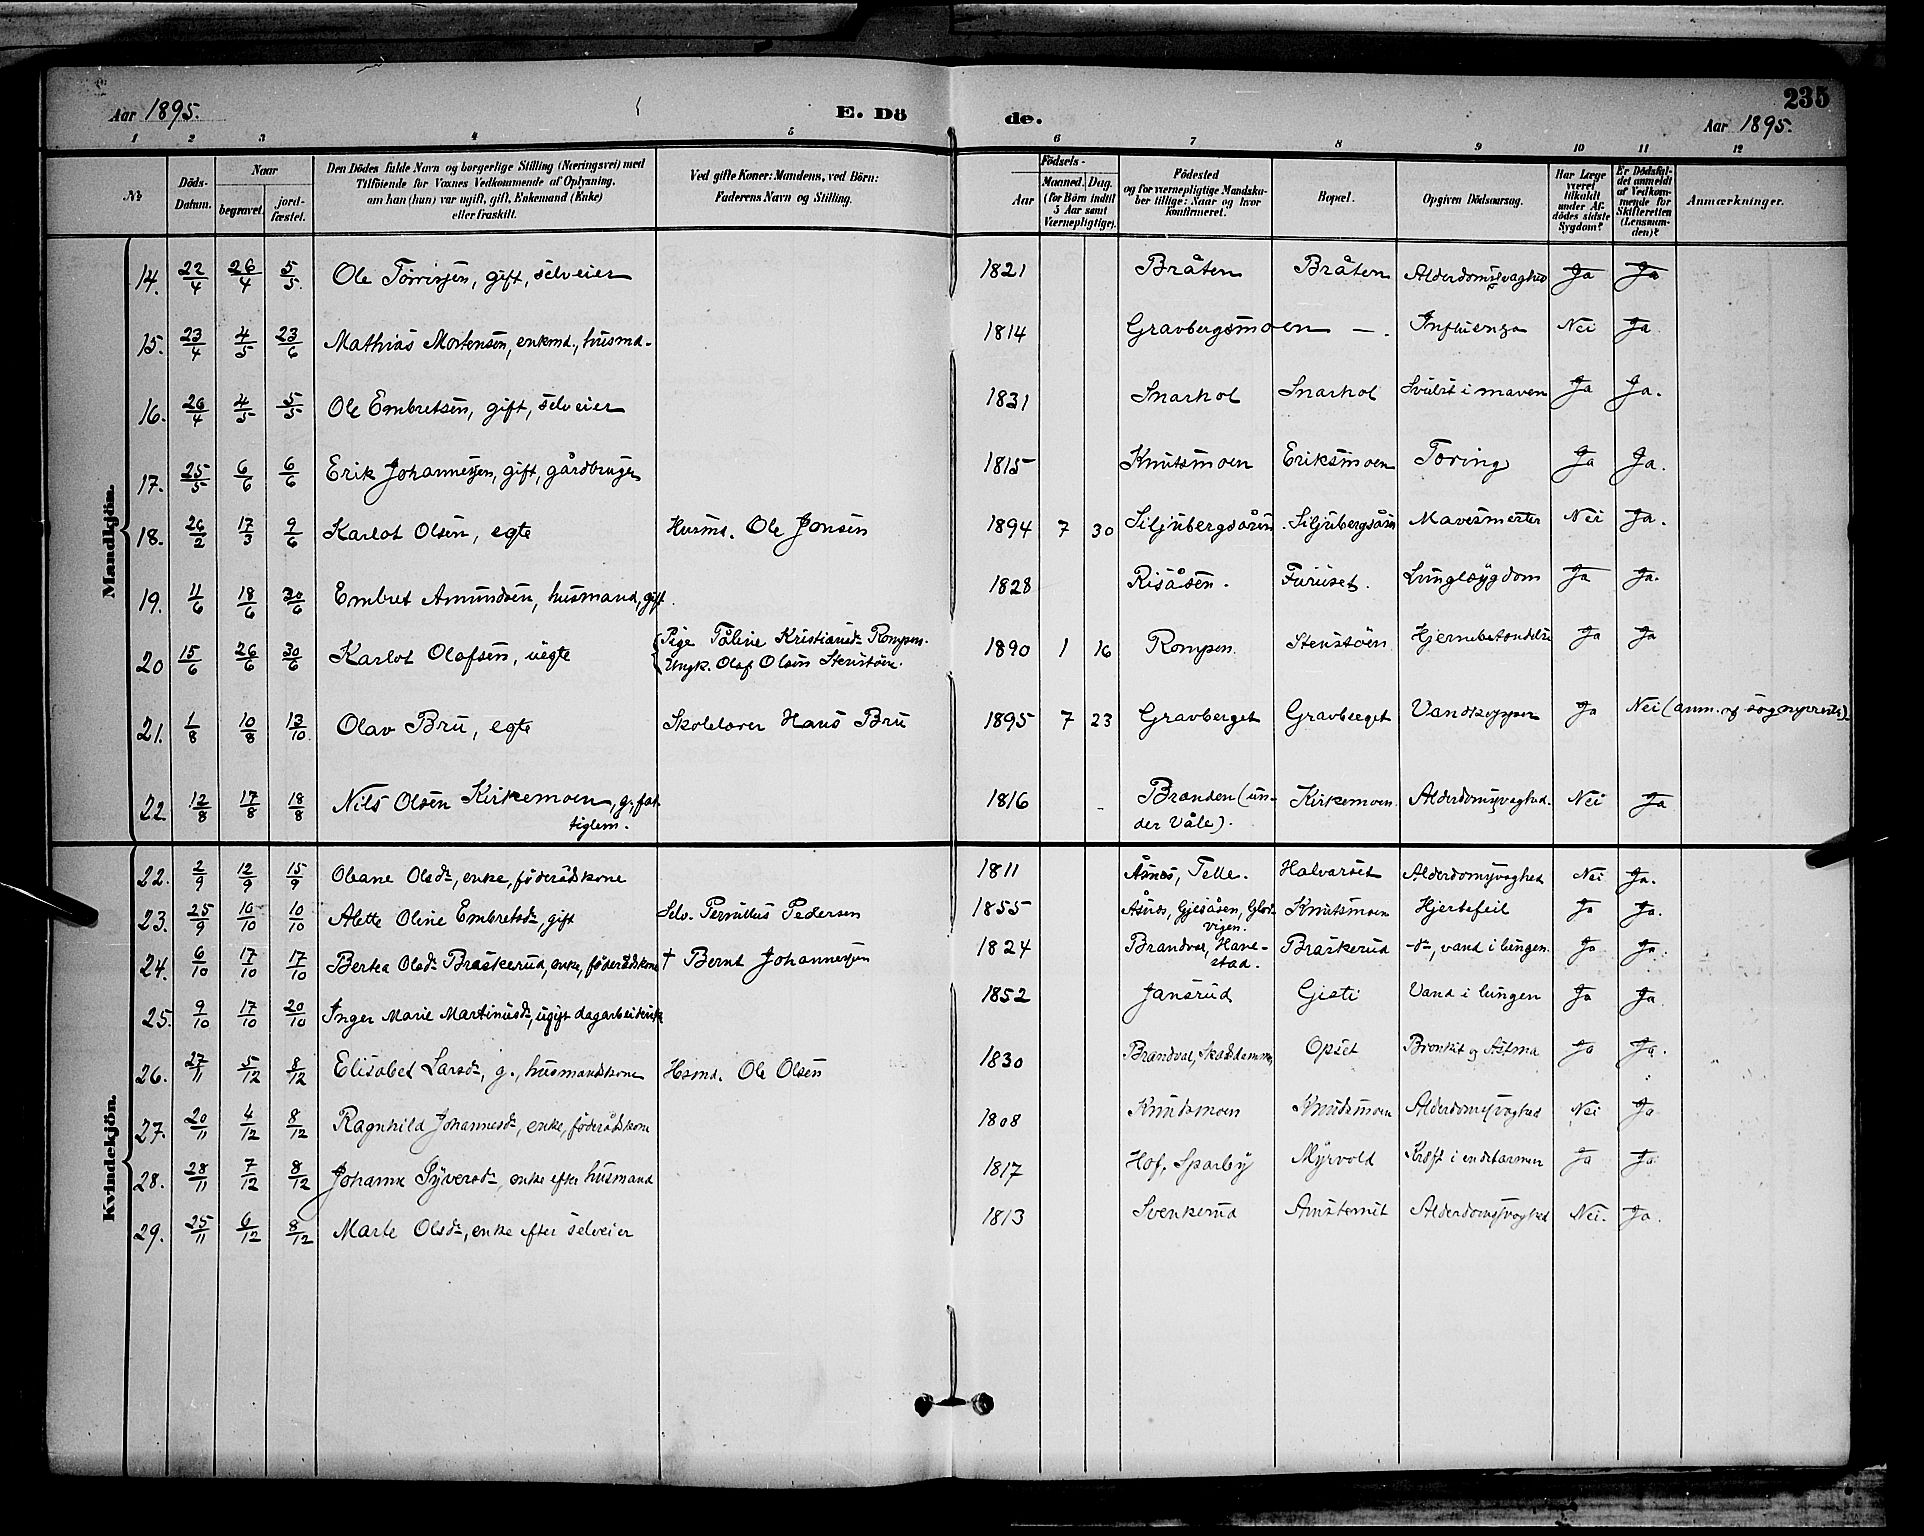 235
Aar 1895. E. Dö de. Aar 1895.
1 2 3 4 5 6 7 8 9 10 11 12
№ Döds-Datum. Naar begravet. jordfæstet. Den Dödes fulde Navn og borgerlige Stilling (Næringsvei) med Tilföiende for Voxnes Vedkommende af Oplysning, om han (hun) var ugift, gift, Enkemand (Enke) eller fraskilt. Ved gifte Koner: Mandens, ved Börn: Faderens Navn og Stilling. Födsels- Aar Maaned. Dag. (for Börn indtil 5 Aar samt Værnepligtige). Födested og for værnepligtige Mandskaber tillige: Naar og hvor konfirmeret. Bopæl. Opgiven Dödsaarsag. Har Læge været tilkaldt under Afdödes sidste Sygdom? Er Dödsfaldet anmeldt af Vedkommende for Skifteretten (Lensmanden)? Anmærkninger.
Mandkjön.
14. 22/4 26/4 5/5 Ole Torrisen, gift, selveier 1821 Bråten Bråten Alderdomssvaghed Ja Ja
15. 23/4 4/5 23/6 Mathias Mortensen, enkmd., husmd. 1814 Gravbergsmoen — . Influenza Nei Ja
16. 26/4 4/5 5/5 Ole Embretsen, gift, selveier 1831 Snarhol Snarhol Svulst i maven Ja Ja.
17. 25/5 6/6 6/6 Erik Johannesen, gift, gårdbruger 1815 Knutsmoen Eriksmoen Tæring Ja Ja.
18. 26/2 17/3 9/6 Karlot Olsen, egte Husmd. Ole Jonsen 1894 7 30 Siljubergsåsen Siljubergsåsen Mavesmerter Nei Ja.
19. 11/6 18/6 30/6 Embret Amundsen, husmand, gift. 1828 Risåsen. Furuset. Lungesygdom Ja Ja.
20 15/6 26/6 30/6 Karlot Olafsen, uegte Pige Tåline Kristiansdr Rompen. Ungk. Olaf Olsen Stenstøen. 1890 1 16 Rompen Stenstøen Hjernebetændelse Ja Ja
21. 1/8 10/8 13/10 Olav Bru, egte Skolelærer Hans Bru 1895 7 23 Gravberget Gravberget Vandkopper Ja Nei (anm. af sognepresten).
22 12/8 17/8 18/8 Nils Olsen Kirkemoen, g, fattiglem. 1816 Branden (under Våle). Kirkemoen. Alderdomssvaghed. Nei Ja
Kvindekjön.
22. 2/9 12/9 15/9 Oleane Olsdr, enke, føderådskone 1811 Åsnes, Telle. Halvorset Alderdomssvaghed Nei Ja.
23. 25/9 10/10 10/10 Alette Oline Embretsdr, gift Selv. Pernillus Pedersen 1855 Åsnes, Gjesåsen, Glosvigen. Knutsmoen Hjertefeil Ja Ja.
24. 6/10 17/10 17/10 Bertea Olsdr Braskerud, enke, føderådskone † Bernt Johannessen 1824 Brandval, Hanestad. Braskerud -dr-, vand i lungen. Ja Ja.
25. 9/10 17/10 20/10 Inger Marie Martinusdr, ugift dagarbeiderske 1852 Jansrud Gjesti Vand i lungen Ja Ja.
26. 27/11 5/12 8/12 Elisabet Larsdr, g., husmandskone Hsmd. Ole Olsen 1830 Brandval, Opset Bronkit og Astma Ja Ja.
27. 20/11 4/12 8/12 Ragnhild Johannesdr, enke, føderådskone 1808 Knudsmoen Knudsmoen Alderdomssvaghed Nei Ja
28. 28/11 7/12 8/12 Johanne Syversdr, enke efter husmand 1817 Hof, Sparby Myrvold Kræft i endetarmen Ja Ja.
29. 25/11 6/12 8/12 Marte Olsdr, enke efter selveier 1813 Svenkerud Alderdomssvaghed Nei. Ja.